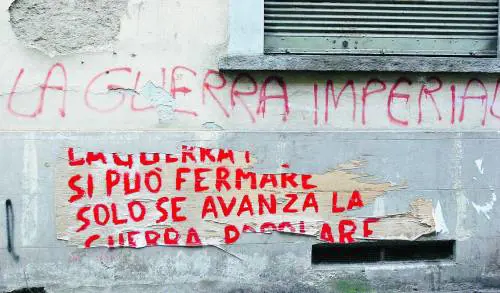 LA GUERRA IMPERIA
LA GUERRA I
SI PUÒ FERMARE
SOLO SE AVANZA LA
GUERRA POPOLARE